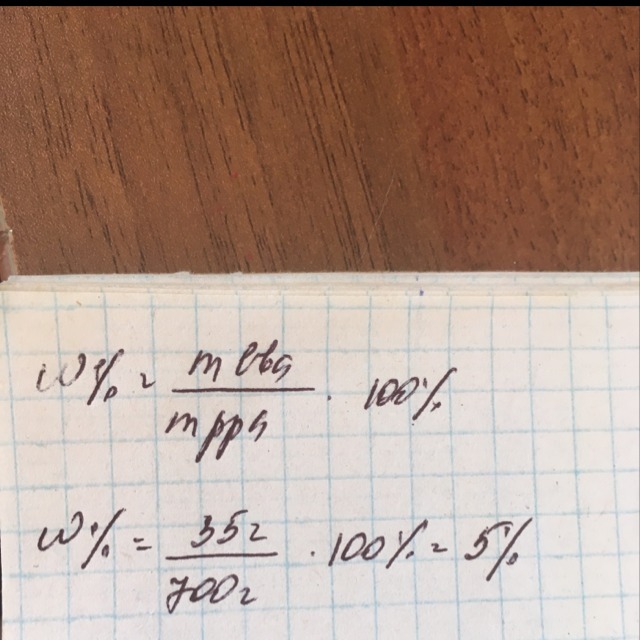 W% = m вва / m рра · 100%
W% = 35г / 700г · 100% = 5%